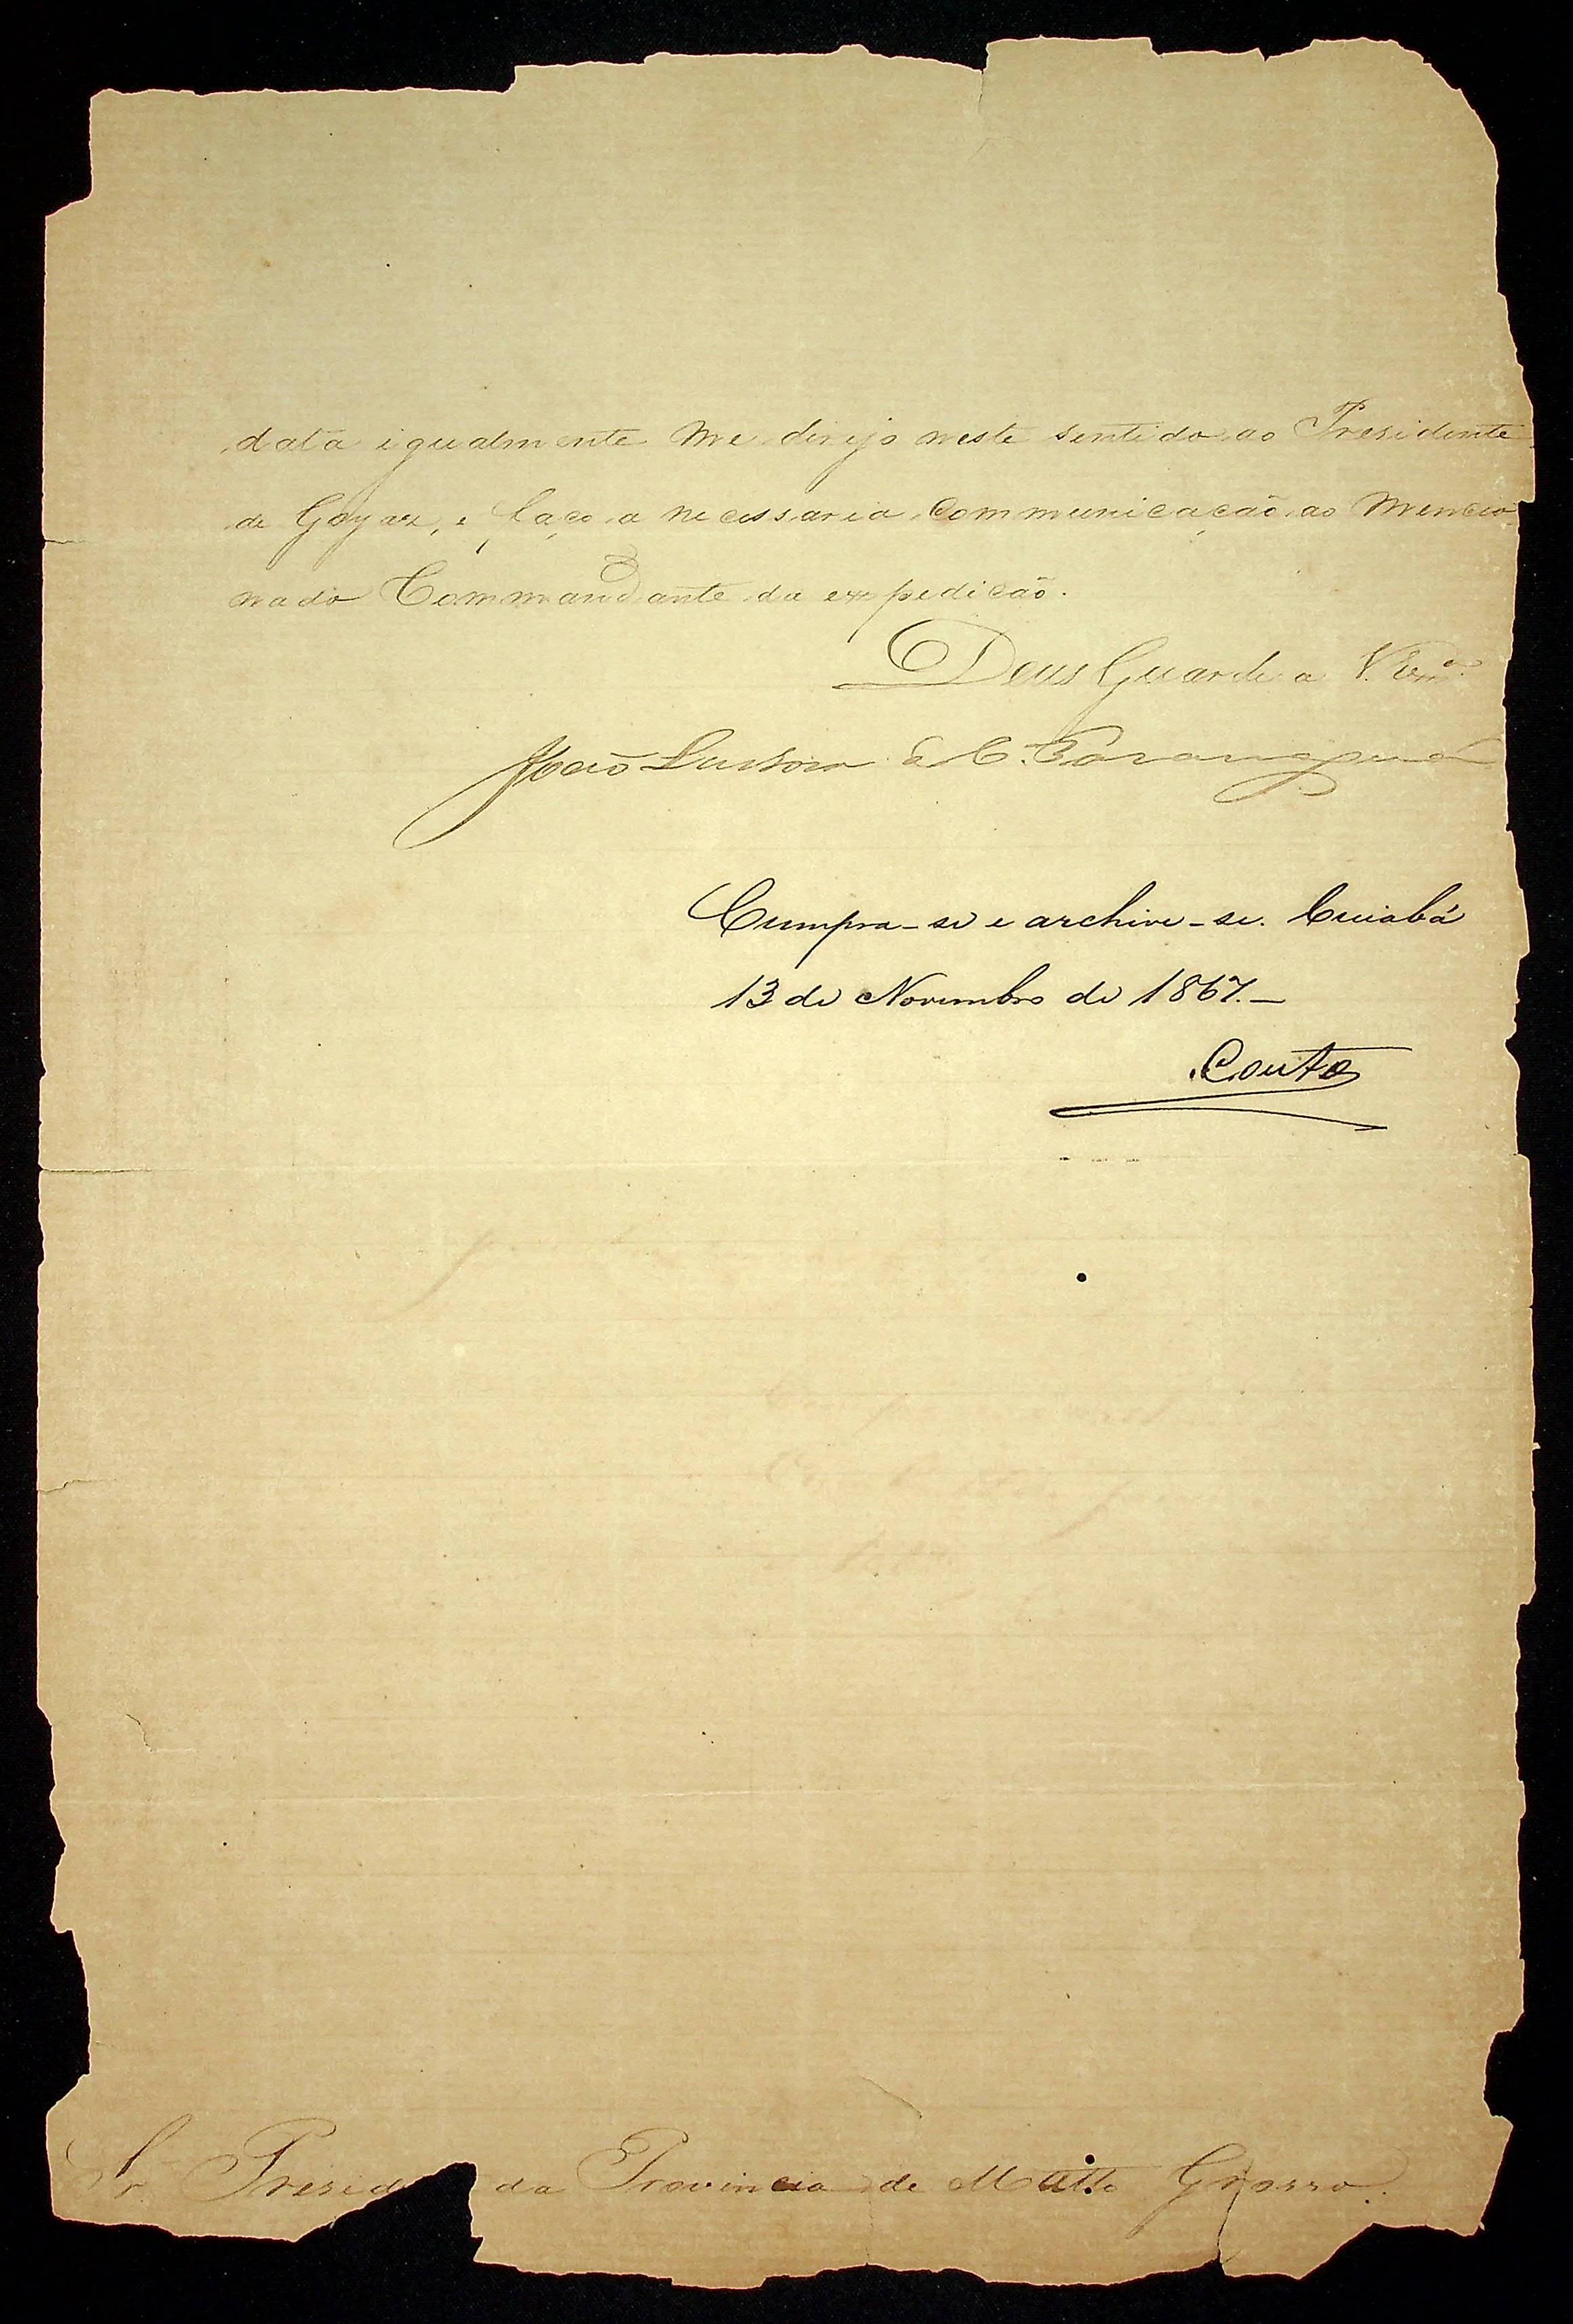 data igualmente me dirijo neste sentido ao Presidente
de Goyaz, e faço a necessaria communicação ao mencio
nado Commandante da expedição.
Deus Guarde a V. Exª.
João Lustosa da C. Paranaguá
Cumpra-se e archive-se. Cuiabá
13 de Novembro de 1867.—
Couto
Sr. Presid da Provincia de Matto Grosso.